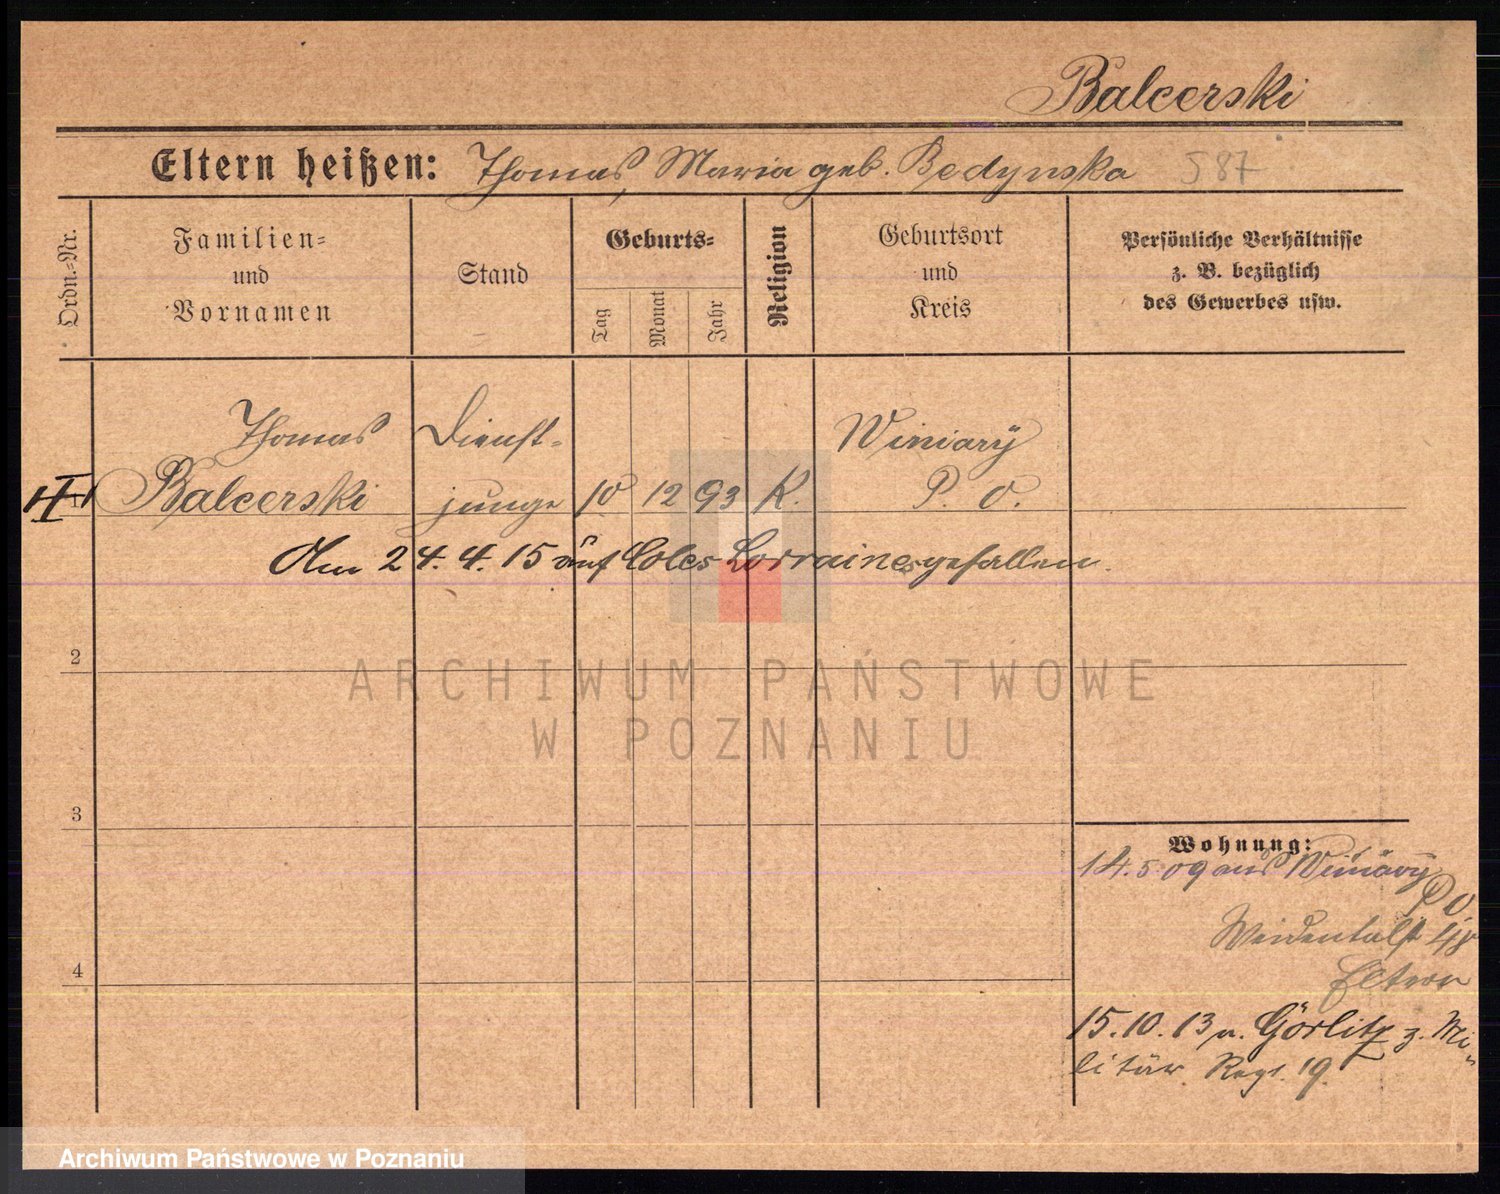 Balcerski
Eltern heißen: Thomas, Maria geb. Bedynska 587
Ordn.=Nr.
Familien=
und
Vornamen
Stand
Geburts=
Tag
Monat
Jahr
Religion
Geburtsort
und
Kreis
Persönliche Verhältnisse
z. B. bezüglich
des Gewerbes usw.
Thomas Dienst= Winiary
1 Balcerski junge 10 12 93 K. P. O.
Am 24. 4. 15 auf Coles Lorraines gefallen.
2
ARCHIWUM PAŃSTWOWE
W POZNANIU
3
Wohnung:
14. 5. 09 aus Winiary
P O.
Weidentalst
Eltern
4
15. 10. 13 n. Görlitz z. Mi=
litär Regt. 19.
Archiwum Państwowe w Poznaniu